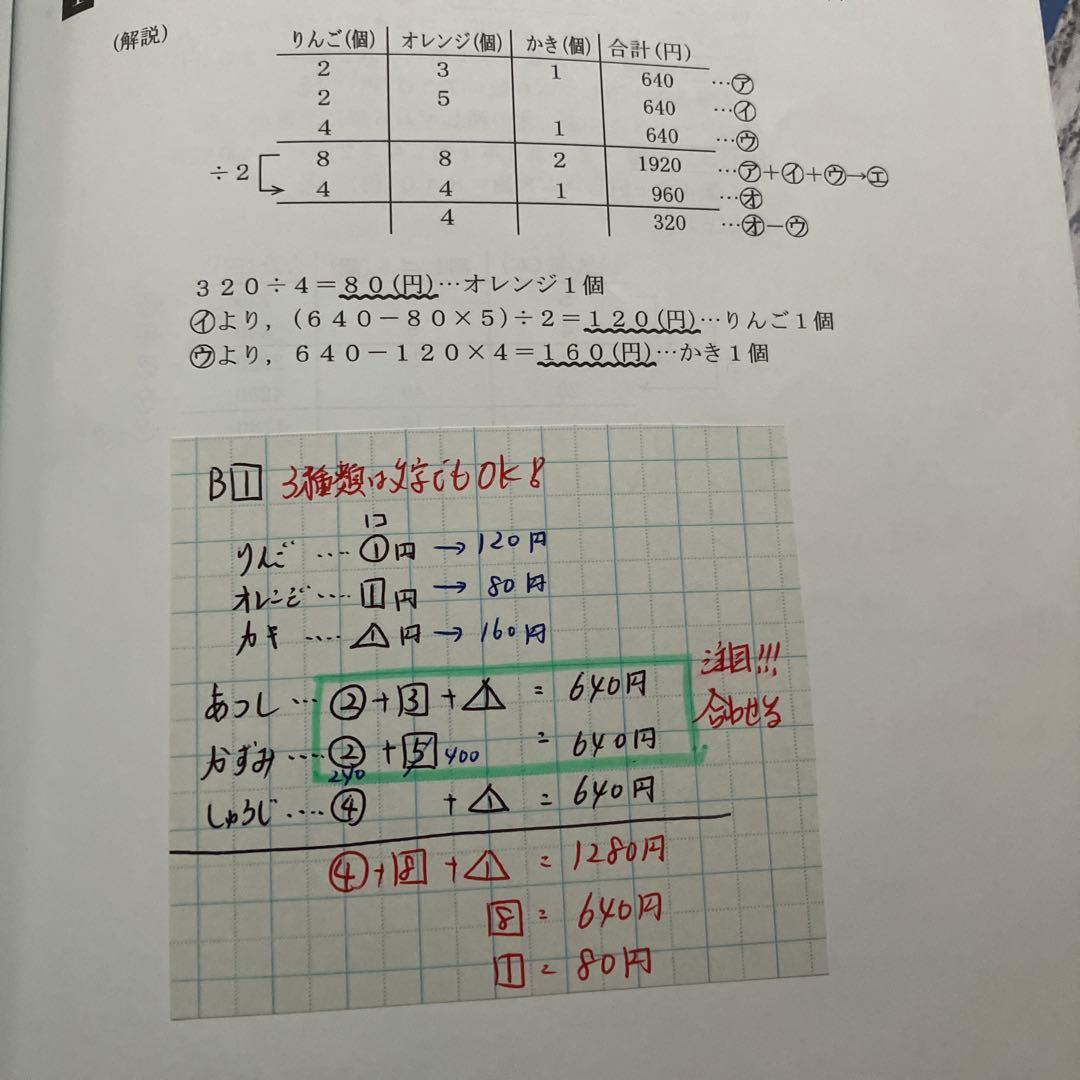 (解説)
りんご(個) オレンジ(個) かき(個) 合計(円)
2 3 1 640 …㋐
2 5 640 …㋑
4 1 640 …㋒
÷2 8 8 2 1920 …㋐+㋑+㋒→㋓
4 4 1 960 …㋔
4 320 …㋔−㋒
320÷4=80(円)…オレンジ1個
㋑より,(640−80×5)÷2=120(円)…りんご1個
㋒より,640−120×4=160(円)…かき1個
B1 3種類は文字でもOK!
1コ
りんご‥‥①円→120円
オレンジ‥‥1円→80円
カキ‥‥1円→160円
あつし…②+3+1=640円
注目!!!
合わせる
かずみ‥‥②+5=640円
240 400
しゅうじ‥‥④+1=640円
④+8+1=1280円
8=640円
1=80円